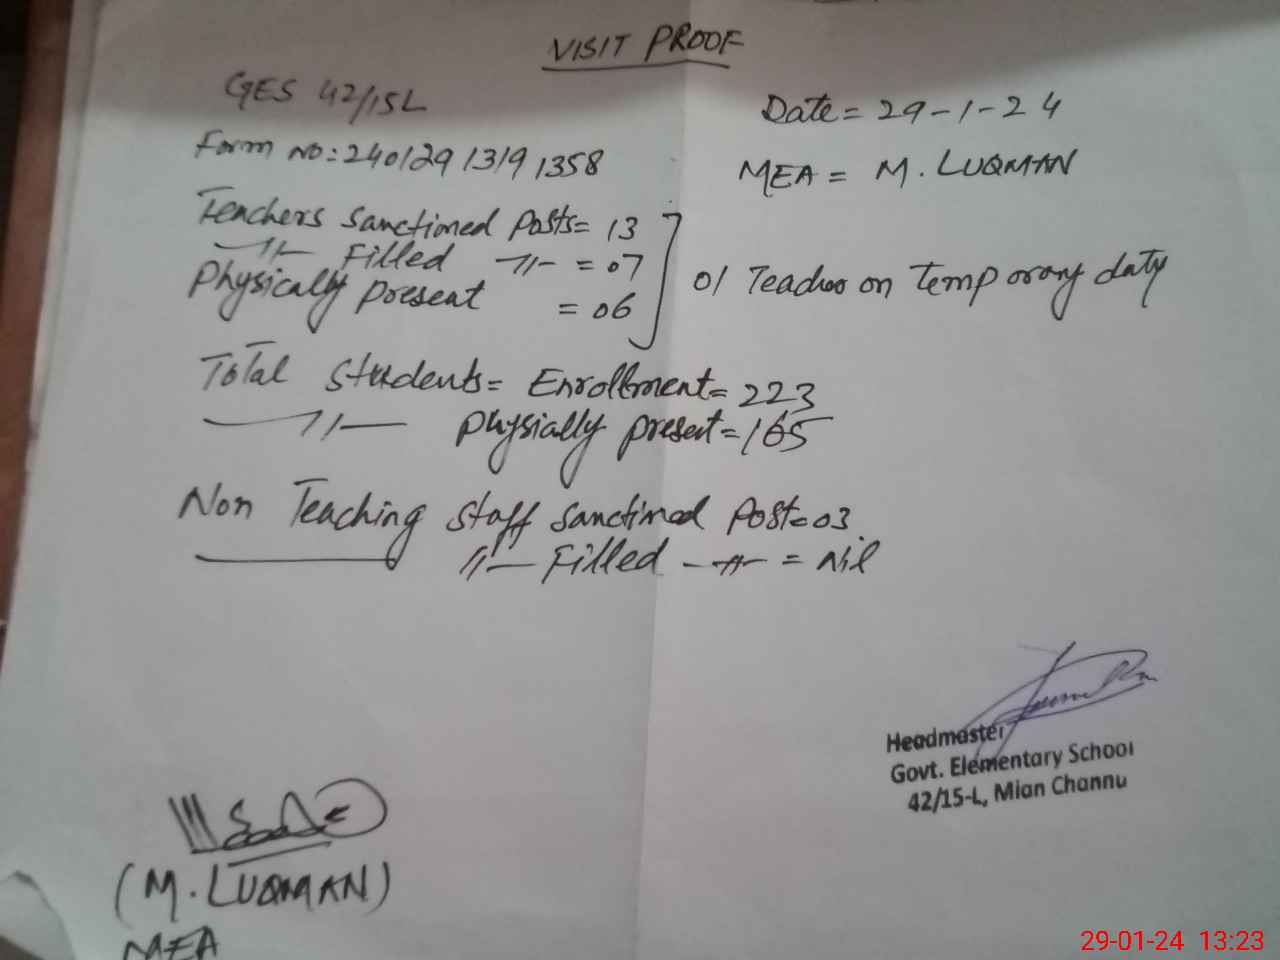 VISIT PROOF
GES 42/15L
Date = 29-1-24
Form no: 240129 1319 1358
MEA = M. LUQMAN
Teachers Sanctioned Posts= 13
—〃— Filled —〃— = 07
Physically present = 06
01 Teacher on temporary duty
Total Students= Enrollment= 223
—〃— physially present= 165
Non Teaching staff sanctined Post= 03
—〃— Filled —〃— = Nil
Headmaster
Govt. Elementary School
42/15-L, Mian Channu
(M. LUQMAN)
MEA
29-01-24 13:23